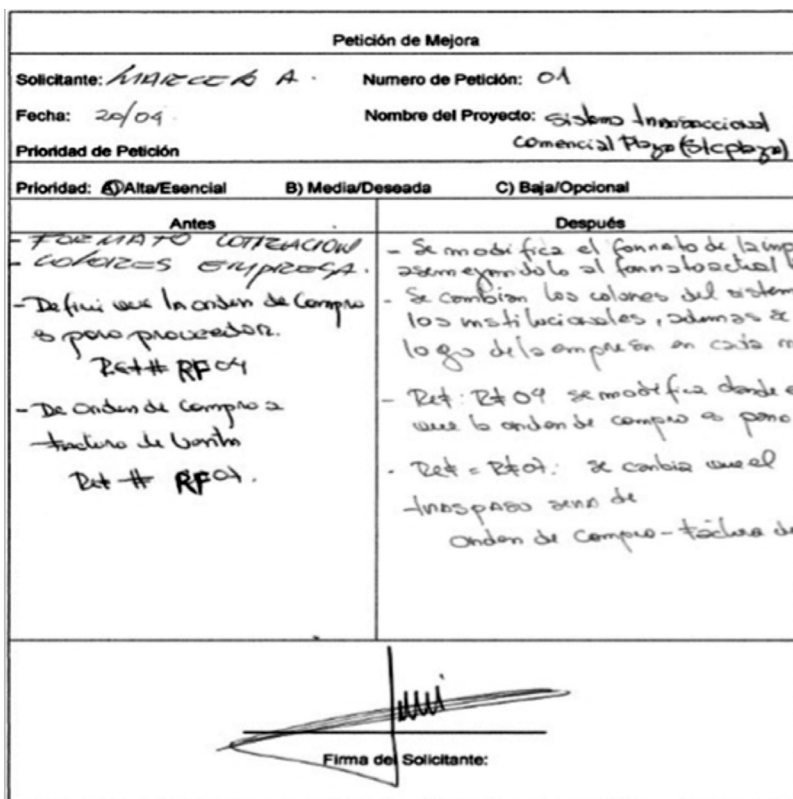 Petición de Mejora
Solicitante: MARCELO A. Numero de Petición: 01
Fecha: 20/04 Nombre del Proyecto: Sistema Transaccional
Comercial Plaza (Sicplaza)
Prioridad de Petición
Prioridad: A) Alta/Esencial B) Media/Deseada C) Baja/Opcional
Antes
- FORMATO COTIZACION
- COLORES EMPRESA.
- Defini que la orden de Compra
es para proveedor.
Ref # RF 04
- De Orden de Compra a
Factura de Venta
Ref # RF 07.
Después
- Se modifica el formato de la imp
asemejandolo al formato actual
- Se cambian los colores del sistem
los institucionales, ademas se
logo de la empresa en cada m
- Ref: RF 04 se modifica donde
que la orden de compra es para
- Ref = RF 07: se cambia que el
traspaso sera de
Orden de Compra - Factura de
Firma del Solicitante: